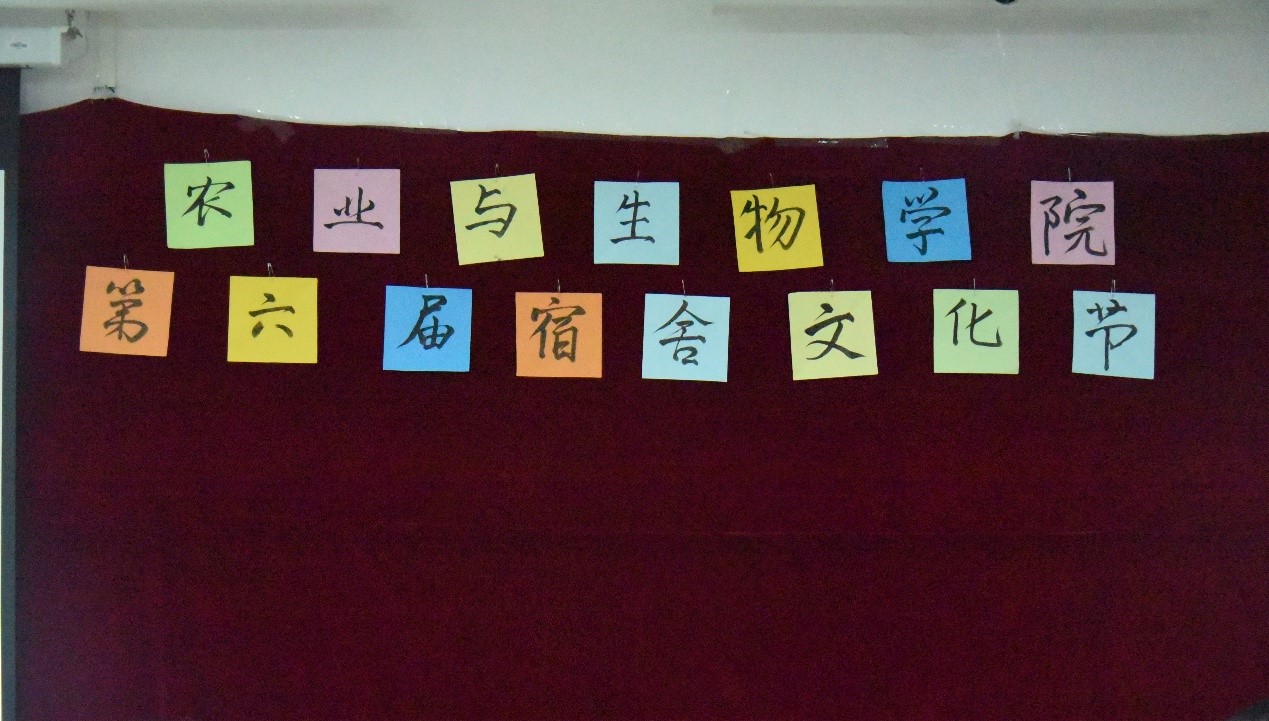 农业与生物学院
第六届宿舍文化节